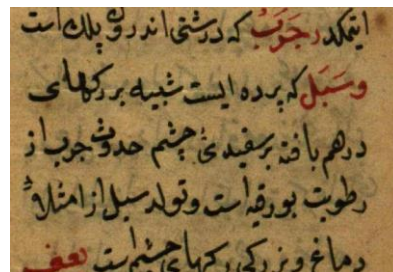 اینکه در جرب که درشتی اندرون پلک است
و سبل که پرده ایست شبیه بر رگهای
درهم بافته بر سفیدی چشم حدوث جرب از
رطوبت بورقیه است و تولد سبل از امتلاء
دماغ و بزرگی رگهای چشم است